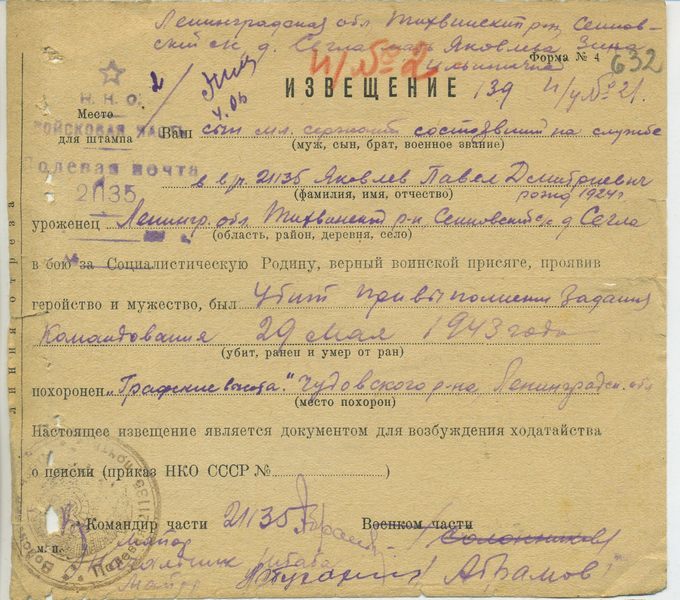 Ленинградская обл Тихвинский р-он Сенновский с/с д. Сегла мать Яковлева Зина
Форма № 4
632
И/№ 2
ИЗВЕЩЕНИЕ
139 и/у № 21.
2
Н. К. О.
ВОЙСКОВАЯ ЧАСТЬ
Полевая почта
21135
Место
для штампа
Ваш сын мл. сержант состоявший на службе
(муж, сын, брат, военное звание)
в в/ч 21135 Яковлев Павел Дмитриевич
(фамилия, имя, отчество) рожд 1924г
уроженец Ленингр. обл Тихвинский р-н Сенновский с/с д Сегла
(область, район, деревня, село)
в бою за Социалистическую Родину, верный воинской присяге, проявив
геройство и мужество, был убит при выполнении задания
командования 29 мая 1943 года
(убит, ранен и умер от ран)
похоронен Чудовского р-на Ленинградск. обл
(место похорон)
Настоящее извещение является документом для возбуждения ходатайства
о пенсии (приказ НКО СССР № )
Командир части 21135
Военком части
майор
м. п.
Начальник штаба
майор
Абрамов
линия отреза